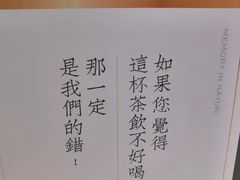 如果您覺得
這杯茶飲不好喝
那一定
是我們的錯！
MEMORY IN NATUKI